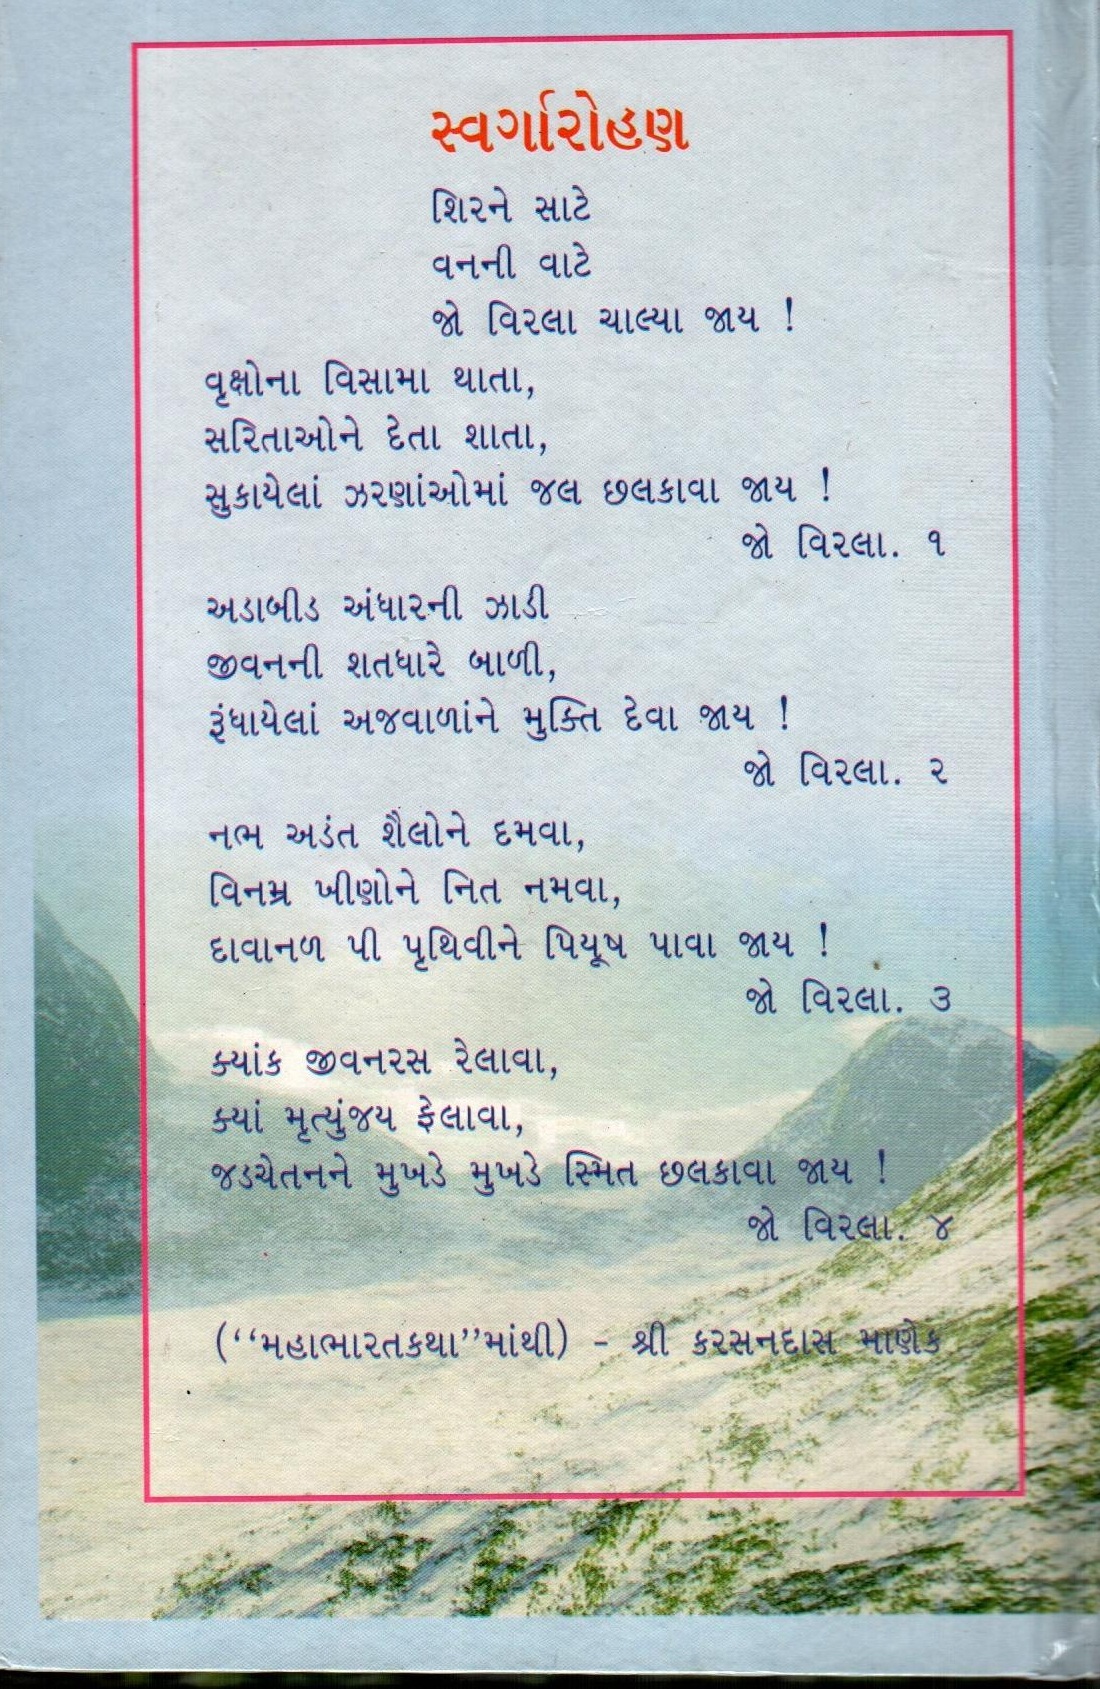 સ્વર્ગારોહણ
શિરને સાટે
વનની વાટે
જો વિરલા ચાલ્યા જાય !
વૃક્ષોના વિસામા થાતા,
સરિતાઓને દેતા શાતા,
સુકાયેલાં ઝરણાંઓમાં જલ છલકાવા જાય !
જો વિરલા. ૧
અડાબીડ અંધારની ઝાડી
જીવનની શતધારે બાળી,
રૂંધાયેલાં અજવાળાંને મુક્તિ દેવા જાય !
જો વિરલા. ૨
નભ અડંત શૈલોને દમવા,
વિનમ્ર ખીણોને નિત નમવા,
દાવાનળ પી પૃથિવીને પિયૂષ પાવા જાય !
જો વિરલા. ૩
ક્યાંક જીવનરસ રેલાવા,
ક્યાં મૃત્યુંજય ફેલાવા,
જડચેતનને મુખડે મુખડે સ્મિત છલકાવા જાય !
જો વિરલા. ૪
(‘‘મહાભારતકથા’’માંથી) - શ્રી કરસનદાસ માણેક